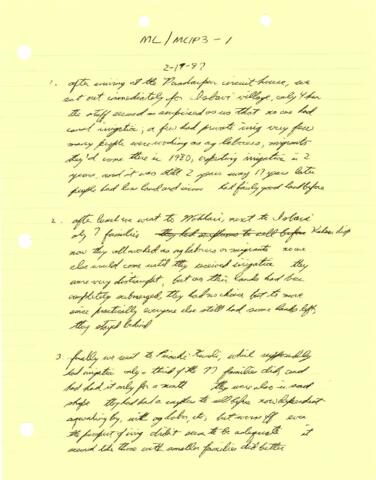 ML/MCIP3-1
2-19-97
1. after arriving at the Pandharpur circuit house, we
set out immediately for Isbavi village, only 4 km
the staff seemed as surprised as us that no one had
canal irrigation, a few had private irrig very few
many people were working as ag laborers, migrants
they'd come there in 1980, expecting irrigation in 2
years, and it was still 2 years away 17 years later
people had less land and income had fairly good land before
2. after lunch we went to, next to Isbavi
only 7 families they had to sell before
now they all worked as ag laborers or migrants no one
else would come until they received irrigation they
were very distraught, but as their lands had been
completely submerged, they had no choice but to move
since practically everyone else still had some lands left,
they stayed behind
3. finally we went to, which supposedly
had irrigation only a third of the families did, and
had had it only for a month they were also in sad
shape they had had a surplus to sell before now dependent
squeaking by, with ag labor, etc, but worse off even
the prospect of irrig didn't seem to be adequate it
seemed like those with smaller families did better